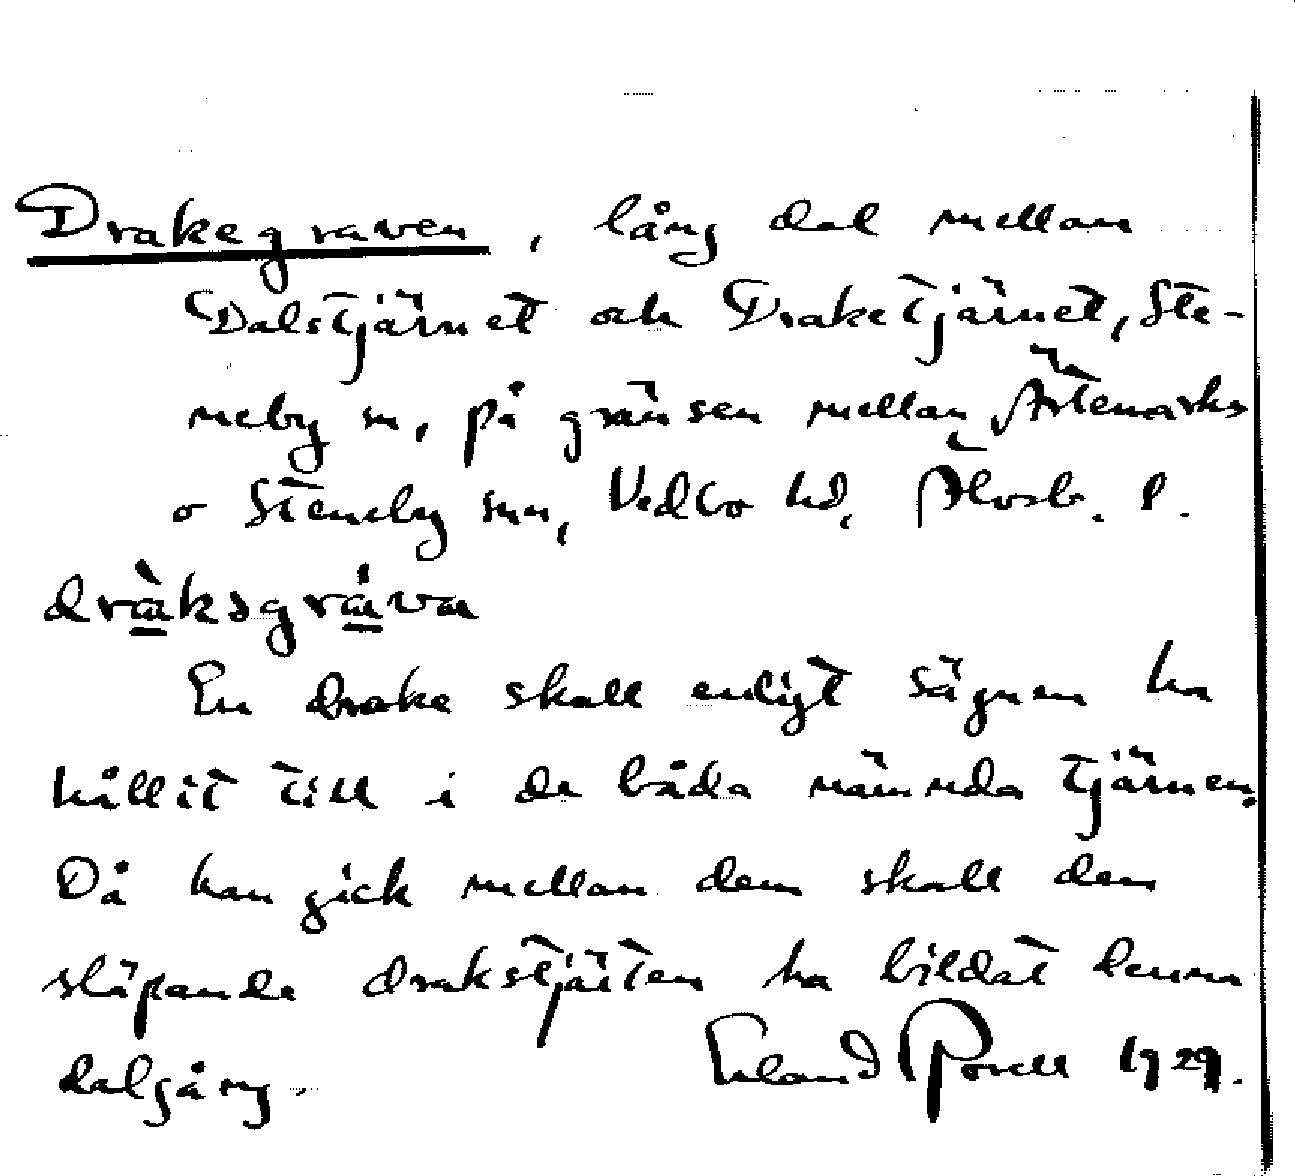 Drakegraven, lång dal mellan
Dalstjärnet och Draketjärnet, Ste-
neby sn, på gränsen mellan Ärtemarks
o Steneby snr, Vedbo hd, Älvsb. l.
dràksgráva
En drake skall enligt sägnen ha
hållit till i de båda nämnda tjärnen.
Då han gick mellan dem skall den
släpande drakstjärten ha bildat denna
dalgång. Erland Rosell 1929.